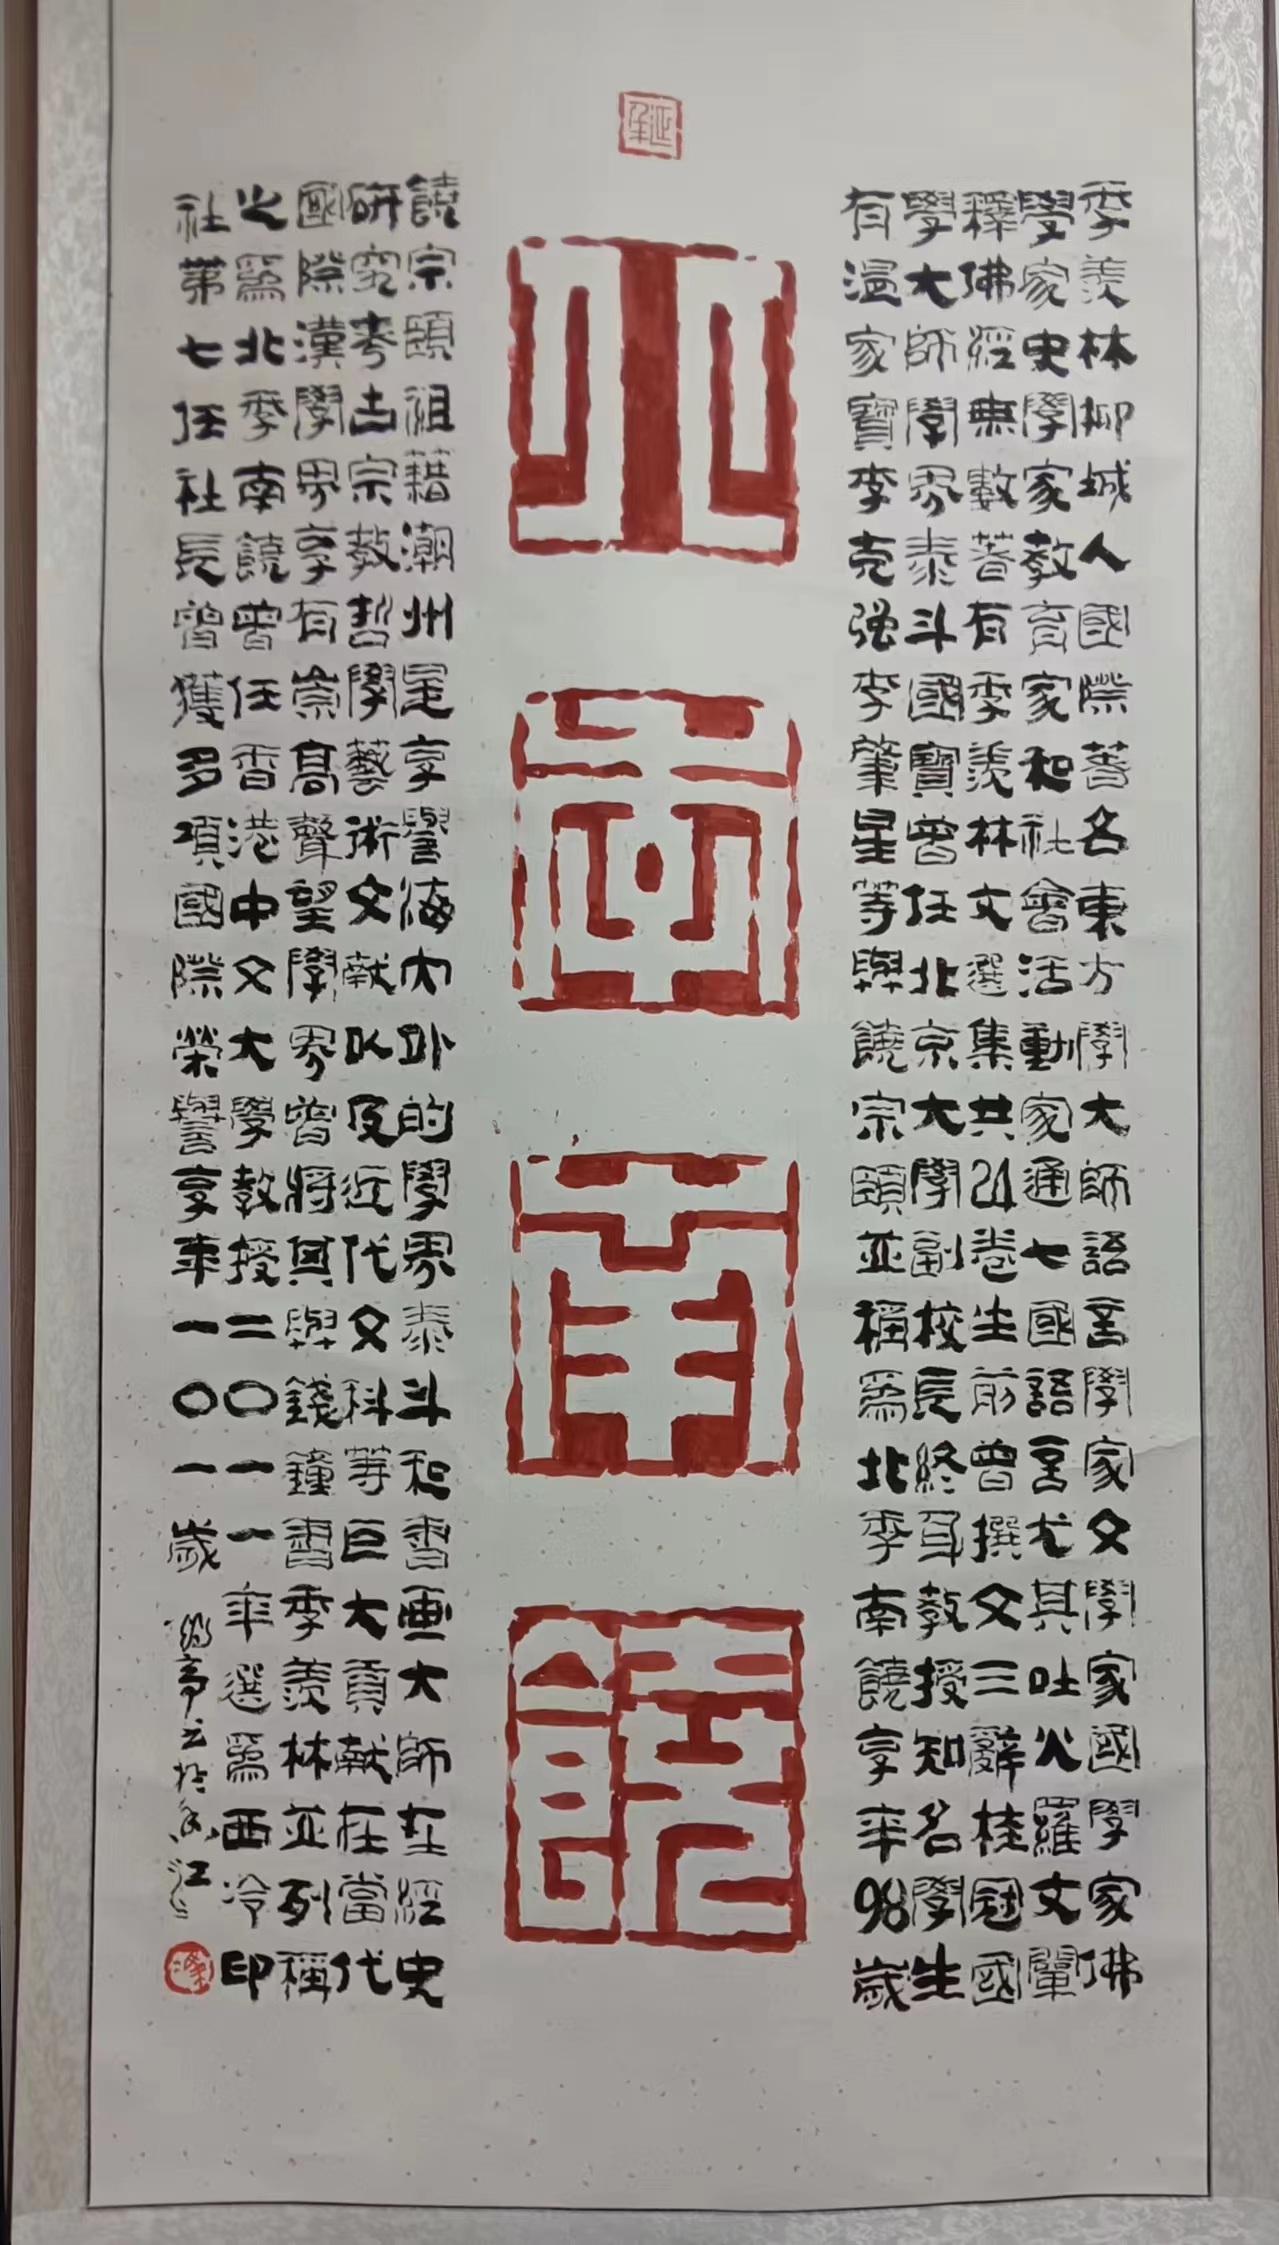 季羡林聊城人國際著名東方學大師語言學家文學家國學家佛
學家史學家教育家和社會活動家通七國語言尤其吐火羅文闡
釋佛經無數著有季羡林文選集共24卷生前曾撰文三辭桂冠國
學大師學界泰斗國寶曾任北京大學副校長終身教授知名學生
有温家寶李克强李肇星等與饒宗頤並稱爲北季南饒享年98歲
北季南饒
饒宗頤祖藉潮州是享譽海内外的學界泰斗和書画大師在經史
研究考古宗教哲學藝術文献以及近代文科等巨大貢献在當代
國際漢學界享有崇高聲望學界曾將其與錢鐘書季羡林並列稱
之爲北季南饒曾任香港中文大學教授二〇一一年選爲西冷印
社第七任社長曾獲多項國際榮譽享年一〇一歲